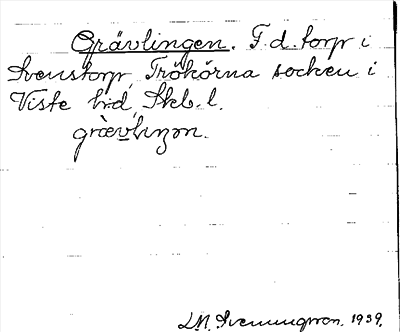 Grävlingen. F.d. torp i
Svenstorp, Trökörna socken i
Viste hd, Skb. l.
grævliŋən.
S.M. Svenungsson. 1939.